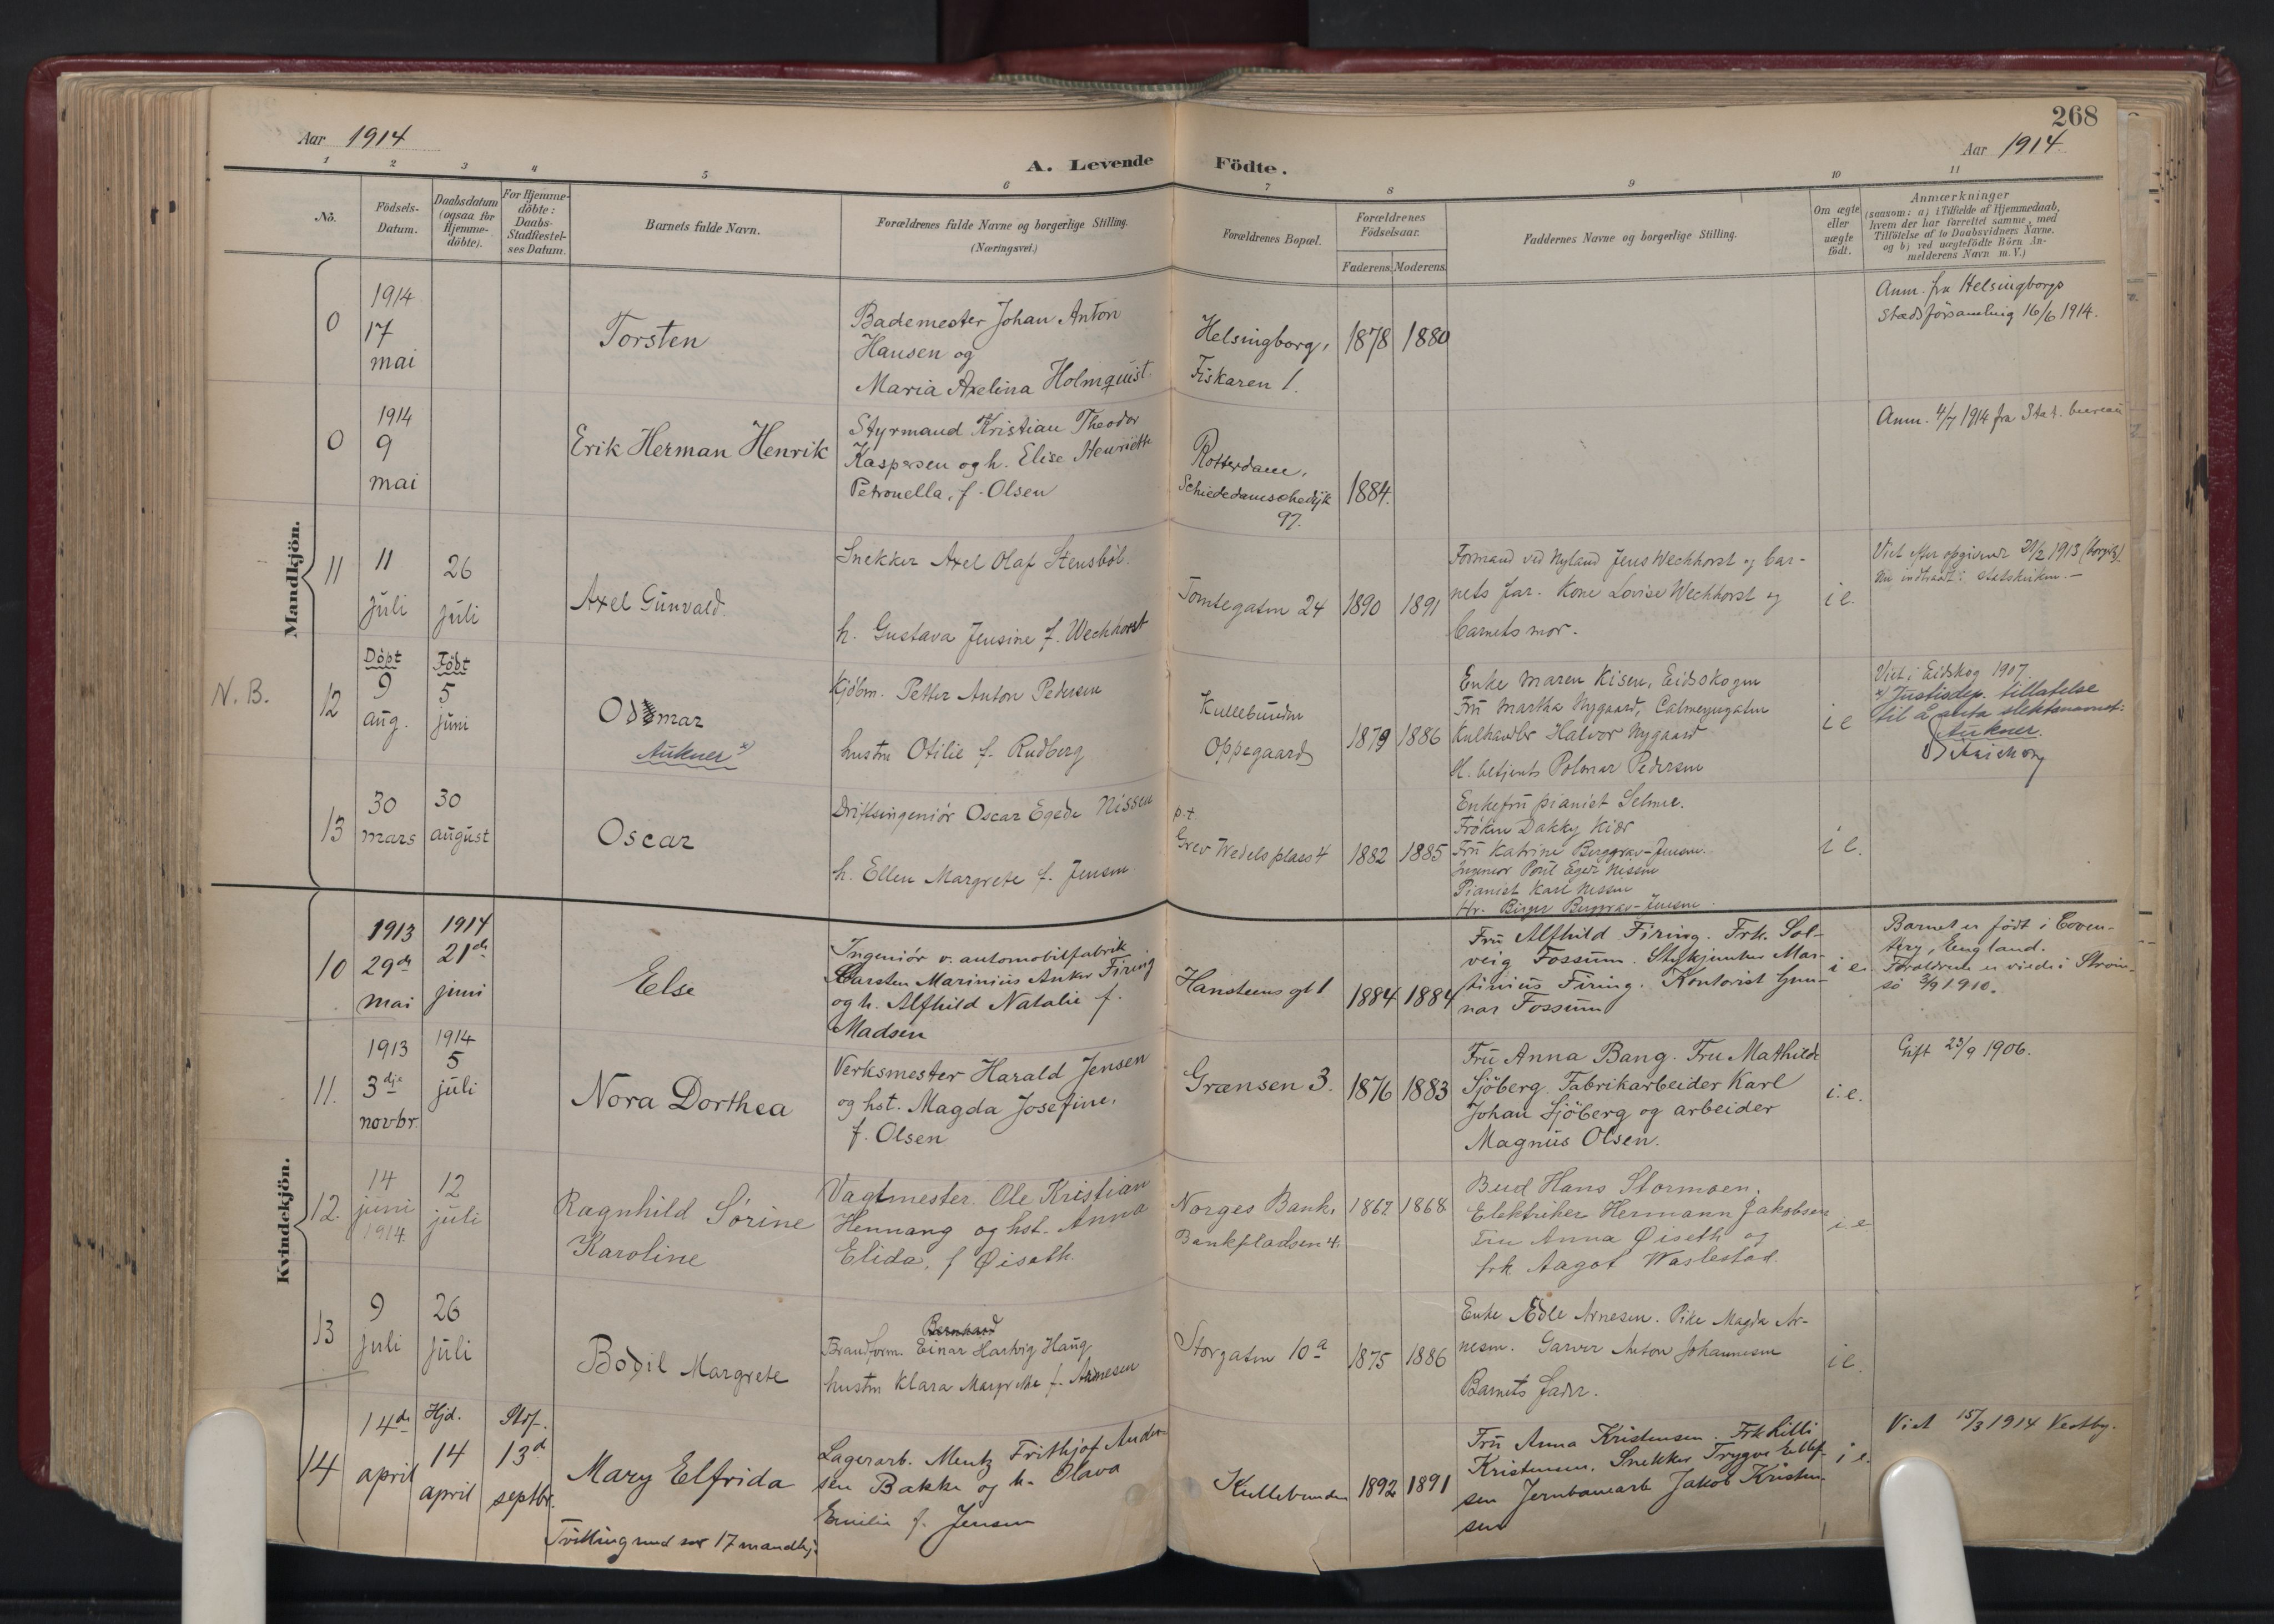 268
Aar 1914
A. Levende Födte.
Aar 1914.
1 2 3 4 5 6 7 8 9 10 11
No.
Födsels-
Datum.
Daabsdatum
(ogsaa for
Hjemme-
döbte).
For Hjemme-
döbte:
Daabs-
Stadfæstel-
ses Datum.
Barnets fulde Navn.
Forældrenes fulde Navne og borgerlige Stilling.
(Næringsvei.)
Forældrenes Bopæl.
Forældrenes
Födselsaar.
Faderens. Moderens.
Faddernes Navne og borgerlige Stilling.
Om ægte
eller
uægte
födt.
Anmærkninger
(saasom: a) i Tilfælde af Hjemmedaab,
hvem der har forrettet samme, med
Tilföielse af to Daabsvidners Navne.
og b) ved uægtefödte Börn An-
melderens Navn m. V.)
Mandkjön.
0
1914
17
mai
Torsten
Bademester Johan Anton
Hansen og
Maria Axelina Holmquist.
Helsingborg,
Fiskaren 1.
1878 1880
Anm. fra Helsingborgs
Stadsförsamling 16/6 1914.
0
1914
9
mai
Erik Herman Henrik
Styrmand Kristian Theodor
Kaspersen og h. Elise Henriette
Petronella, f. Olsen
Rotterdam,
Schiedamschedijk
97.
1884.
Anm. 4/7 1914 fra Stat. bureau
11
11
juli
26
juli
Axel Gunvald
Snekker Axel Olaf Stensböl.
h. Gustava Jensine f. Wechhorst
Tomtegaten 24
1890 1891
Formand ved Nyland Jens Wechhorst og bar-
nets far. Kone Lovise Wechhorst og
barnets mor.
i e.
Viet efter opgivende 21/2 1913 (borgerlig).
Nu indtraadt i statskirken. —
N. B.
12
Döpt
9
aug.
Födt
5
juni
Odmar
Aukner x)
Kjöbm. Petter Anton Pedersen
hustru Otilie f. Rudberg
Kullebunden
Oppegaard
1879 1886
Enke Maren Kisen, Eidskogen
Fru Martha Nygaard, Calmeyergaten
Kulhandler Halvor Nygaard
H. betjent Polmar Pedersen
i e
Viet i Eidskog 1907.
x) Justisdep. tillatelse
til å anta slektsnavnet:
Aukner.
13
30
mars
30
august
Oscar
Driftsingeniör Oscar Egede Nissen
h. Ellen Margrete f. Jensen
p.t.
Grev Wedels plass 4
1882 1885
Enkefru pianist Selmer.
Fröken Dakky Kiær
Fru Katrine Berggrav-Jensen.
Ingeniör Poul Egede Nissen
Pianist Karl Nissen
Hr. Birger Berggrav-Jensen.
i e.
Kvindekjön.
10
1913
29de
mai
1914
21de
juni
Else
Ingeniör v. automobilfabrik
Carsten Marinius Anker Firing
og h. Alfhild Natalie f.
Madsen
Hansteens gt 1
1884 1884
Fru Alfhild Firing. Frk. Sol-
veig Fossum. Styrkjunker Mar-
tinius Firing. Kontorist Gun-
nar Fossum
i e.
Barnet er födt i Coven-
tery, England.
Forældrene er viede i Strom-
sö 3/9 1910.
11.
1913
3dje
novbr.
1914
5
juli
Nora Dorthea
Verksmester Harald Jensen
og hst. Magda Josefine,
f. Olsen
Grænsen 3.
1876 1883
Fru Anna Bang. Fru Mathilde
Sjöberg. Fabrikarbeider Karl
Johan Sjöberg og arbeider
Magnus Olsen.
i.e.
Gift 23/9 1906.
12.
14
juni
1914.
12
juli
Ragnhild Sörine
Karoline
Vagtmester Ole Kristian
Hennang og hst. Anna
Elida, f Øiseth.
Norges Bank,
Bankpladsen 4.
1867 1868
Bud Hans Stormoen,
Elektriker Hermann Jakobsen
Fru Anna Øiseth og
frk Aagot Warlestad.
i. e
13
9
juli
26
juli
Bodil Margrete
Bernhard
Brandform. Einar Hartvig Haug
hustru Klara Margrethe f. Arnesen
Storgaten 10a
1875 1886
Enke Ædle Arnesen. Pike Magda Ar-
nesen. Garver Anton Johannesen
Barnets fader.
i e.
14
14de
april
Hjd.
14
april
Stof.
13d
septbr.
Mary Elfrida
Tvilling med no 17 mandkj.
Lagerarb. Mentz Frithjof Ander-
sen Bakke og h. Olava
Emilie f. Jensen
Kullebunden
1892 1891
Fru Anna Kristensen. Frk Lilli
Kristensen, Snekker Trygve Ellef-
sen Jernbanearb Jakob Kristen-
sen
i e.
Viet 15/3 1914 Vestby.